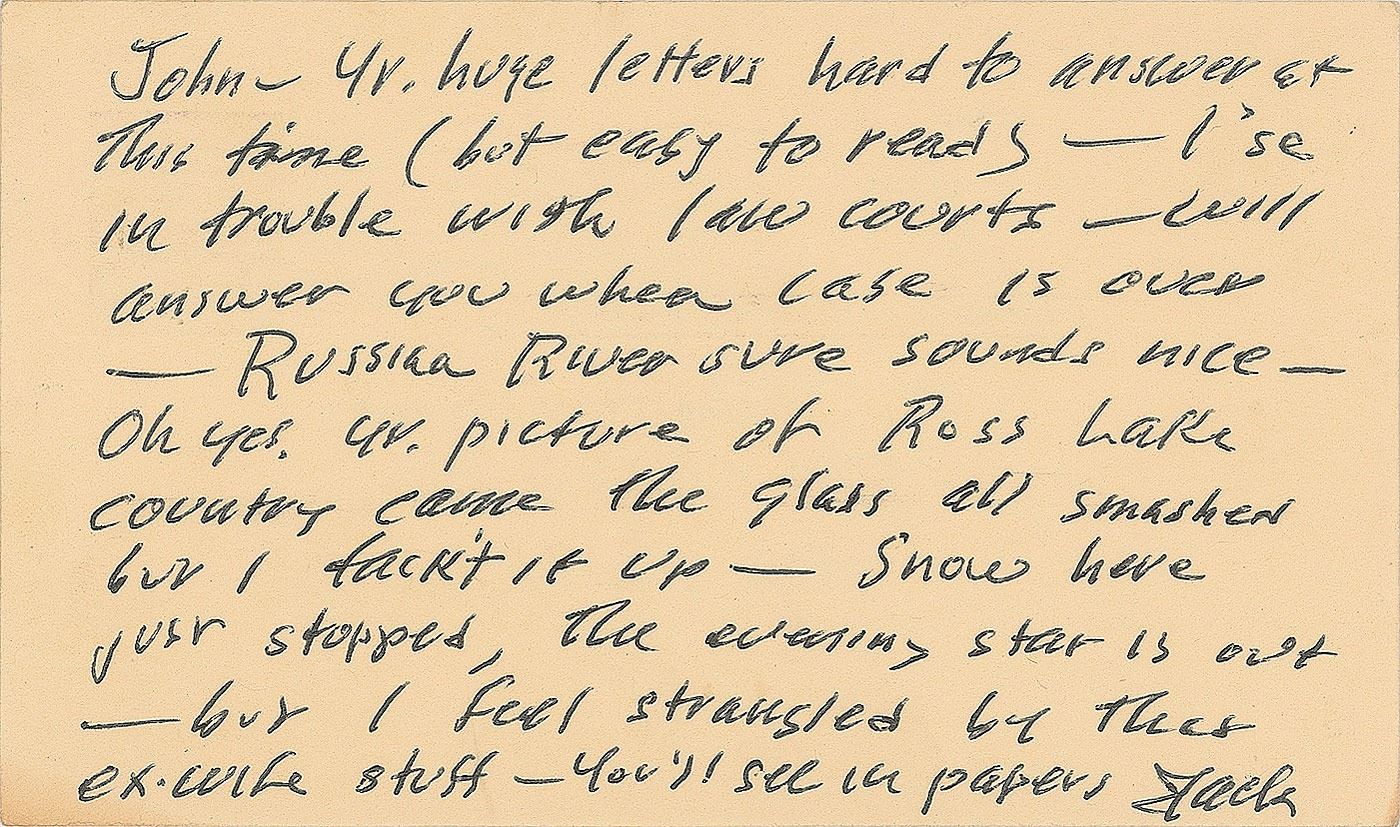 John— Yr. huge letters hard to answer at
this time (but easy to read) — I'se
in trouble with law courts — will
answer you when case is over
— Russian River sure sounds nice —
Oh yes, yr. picture of Ross Lake
country came the glass all smashed
but I tack't it up — Snow here
just stopped, the evening star is out
— but I feel strangled by that
ex-wife stuff — You'll see in papers Jack